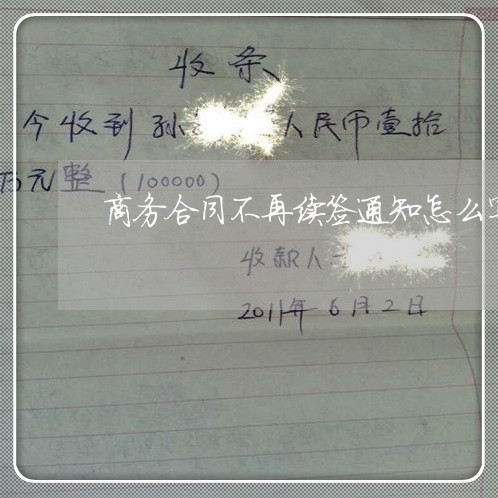 收条
今收到孙 人民币壹拾
万元整（100000）
商务合同不再续签通知怎么
收款人
2011年6月2日